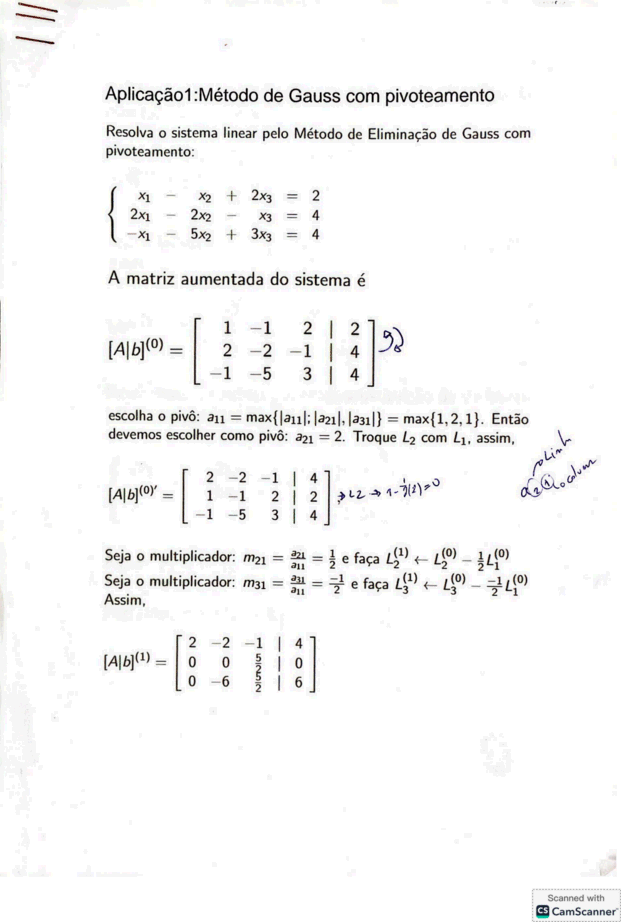 Aplicação1:Método de Gauss com pivoteamento
Resolva o sistema linear pelo Método de Eliminação de Gauss com
pivoteamento:
x₁ − x₂ + 2x₃ = 2
2x₁ − 2x₂ − x₃ = 4
−x₁ − 5x₂ + 3x₃ = 4
A matriz aumentada do sistema é
[A|b]⁽⁰⁾ =
1 −1 2 | 2
2 −2 −1 | 4
−1 −5 3 | 4
escolha o pivô: a₁₁ = max{|a₁₁|; |a₂₁|, |a₃₁|} = max{1, 2, 1}. Então
devemos escolher como pivô: a₂₁ = 2. Troque L₂ com L₁, assim,
[A|b]⁽⁰⁾′ =
2 −2 −1 | 4
1 −1 2 | 2
−1 −5 3 | 4
Seja o multiplicador: m₂₁ = a₂₁/a₁₁ = 1/2 e faça L₂⁽¹⁾ ← L₂⁽⁰⁾ − 1/2 L₁⁽⁰⁾
Seja o multiplicador: m₃₁ = a₃₁/a₁₁ = −1/2 e faça L₃⁽¹⁾ ← L₃⁽⁰⁾ − −1/2 L₁⁽⁰⁾
Assim,
[A|b]⁽¹⁾ =
2 −2 −1 | 4
0 0 5/2 | 0
0 −6 5/2 | 6
Scanned with
CS CamScanner